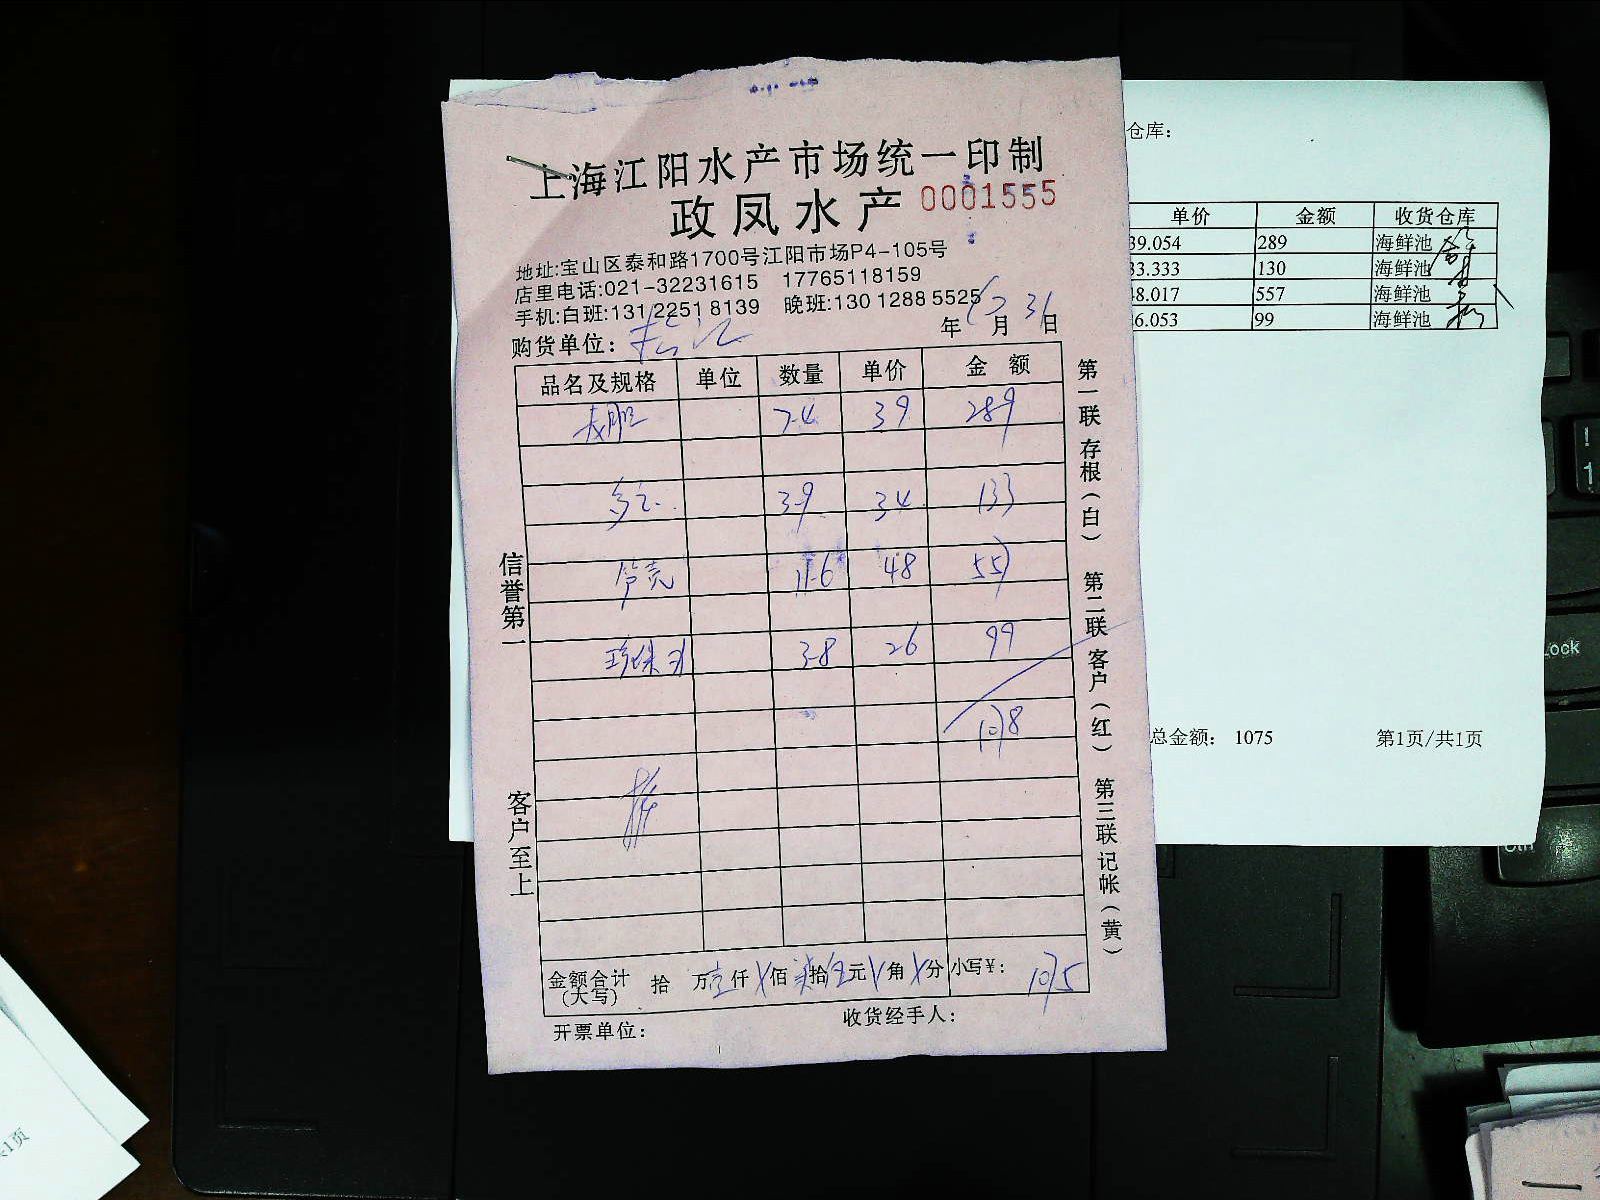 上海江阳水产市场统一印制
政凤水产 0001555
地址:宝山区泰和路1700号江阳市场P4-105号
店里电话:021-32231615 17765118159
手机:白班:13122518139 晚班:13012885525
购货单位:
年 月 31 日
品名及规格 单位 数量 单价 金 额
龙胆 7.4 39 289
多宝 3.9 34 133
笋壳 11.6 48 557
珍珠斑 3.8 26 99
1078
金额合计(大写) 拾 万壹仟 佰柒拾伍元 角 分 小写¥: 1075
开票单位: 收货经手人:
信誉第一
客户至上
第一联 存根(白) 第二联 客户(红) 第三联 记帐(黄)
仓库:
单价 金额 收货仓库
39.054 289 海鲜池
33.333 130 海鲜池
8.017 557 海鲜池
6.053 99 海鲜池
总金额: 1075 第1页/共1页
Lock
Ctrl
!
1
1页